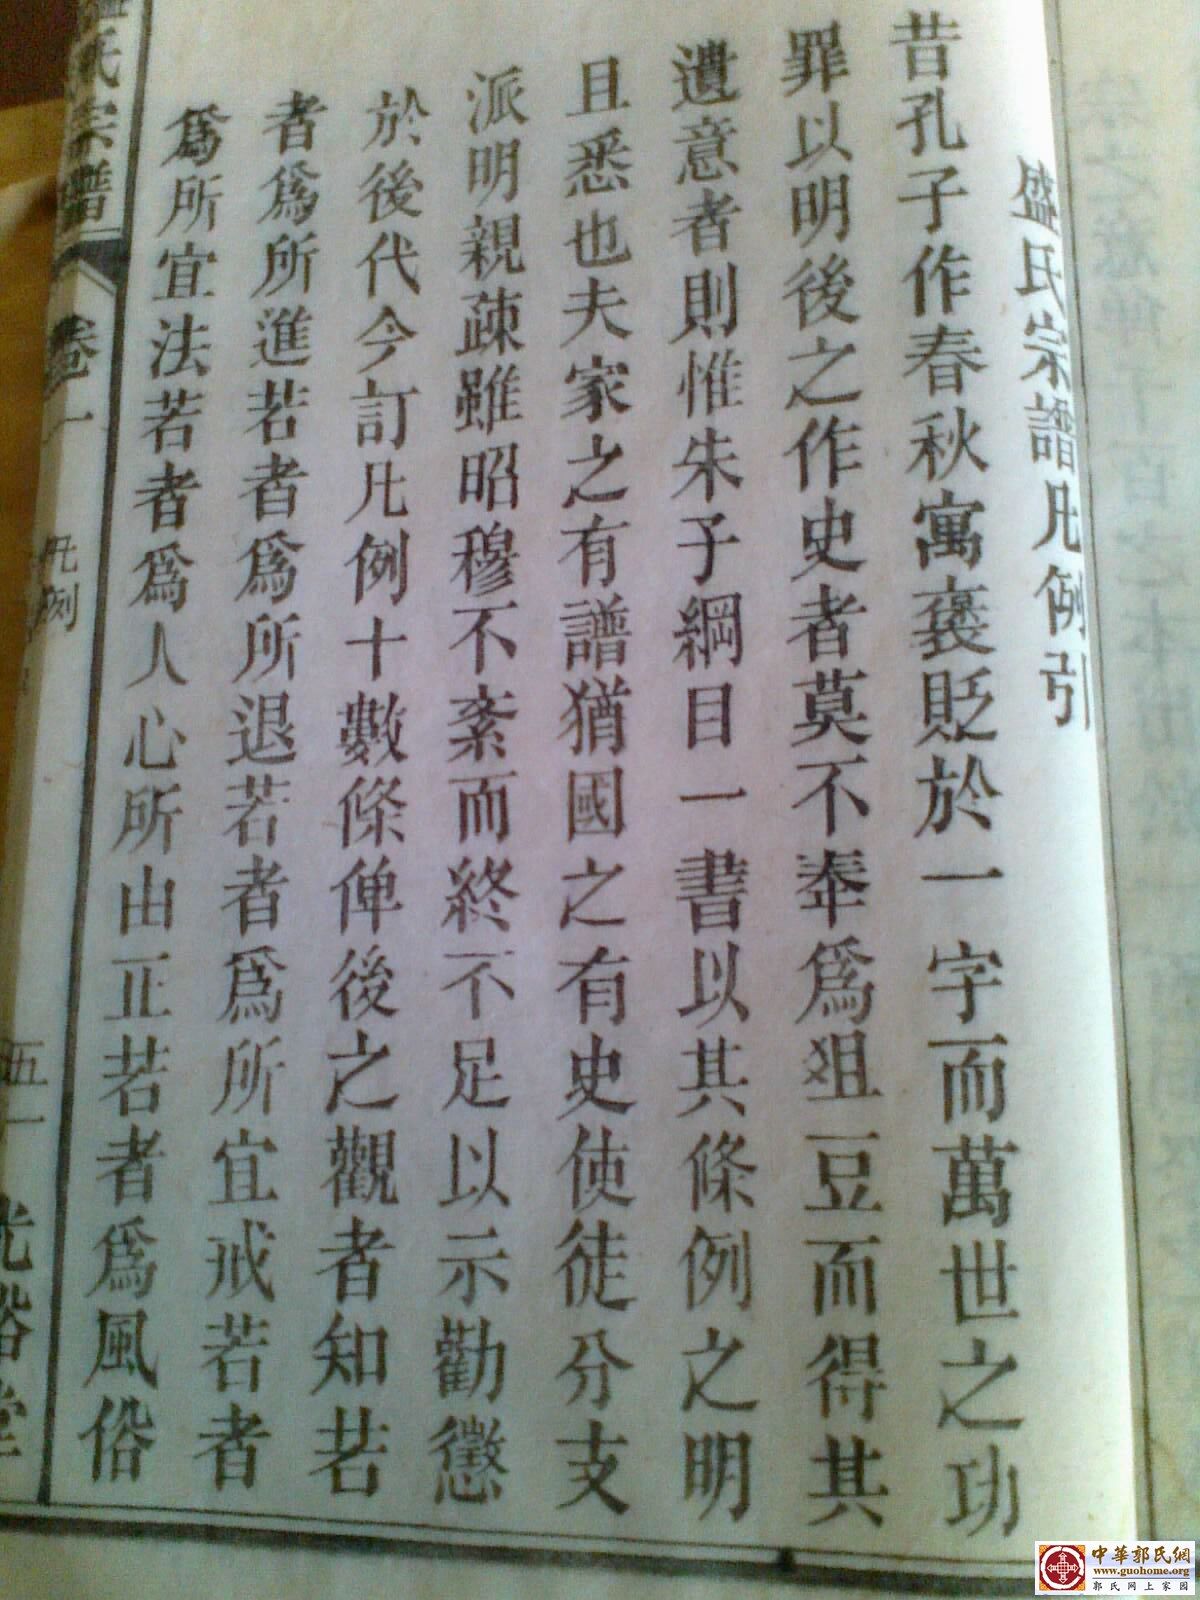 盛氏宗譜凡例引
昔孔子作春秋寓褒貶於一字而萬世之功
罪以明後之作史者莫不奉爲俎豆而得其
遺意者則惟朱子綱目一書以其條例之明
且悉也夫家之有譜猶國之有史使徒分支
派明親疎雖昭穆不紊而終不足以示勸懲
於後代今訂凡例十數條俾後之觀者知若
者爲所進若者爲所退若者爲所宜戒若者
爲所宜法若者爲人心所由正若者爲風俗
氏宗譜
卷一
凡例
五一
中華郭氏網
www.guohome.org
郭氏网上家园